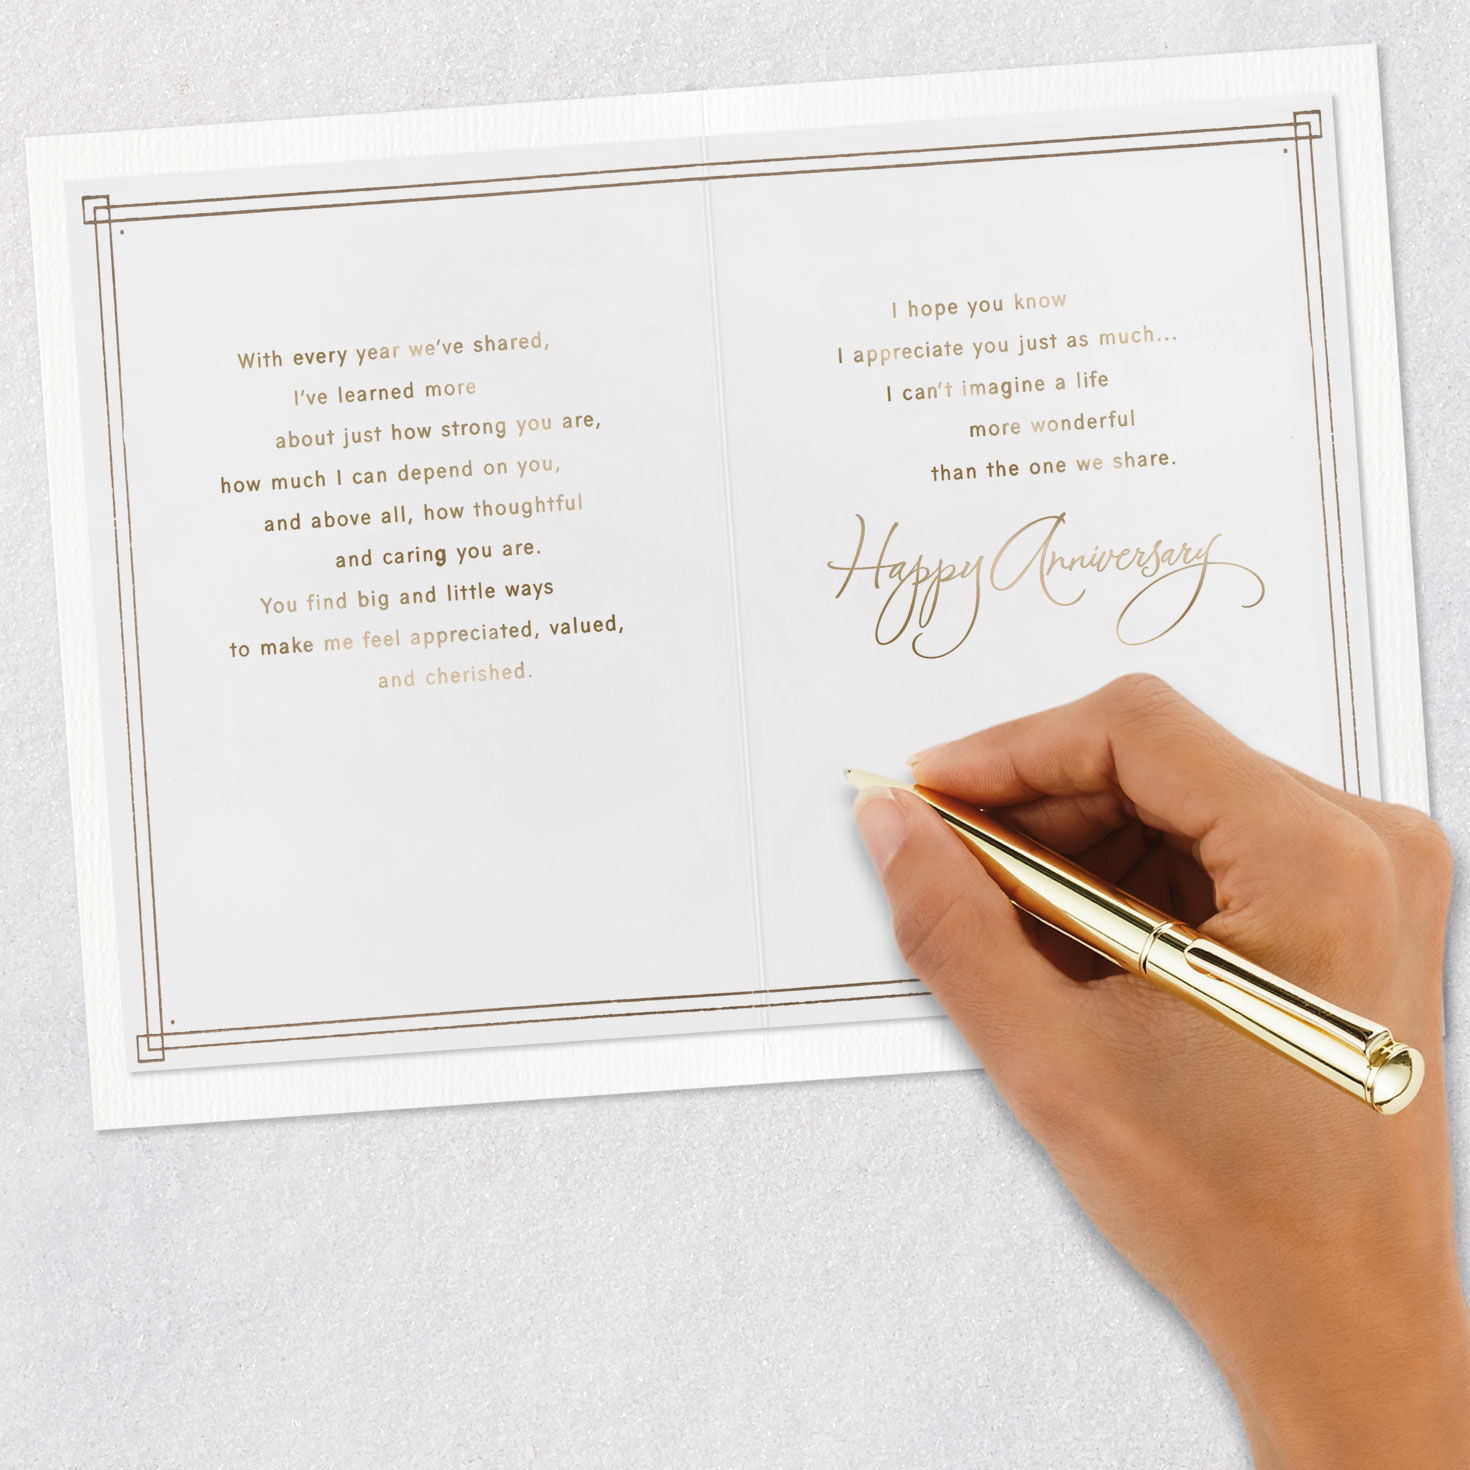 With every year we've shared,
I've learned more
about just how strong you are,
how much I can depend on you,
and above all, how thoughtful
and caring you are.
You find big and little ways
to make me feel appreciated, valued,
and cherished.
I hope you know
I appreciate you just as much...
I can't imagine a life
more wonderful
than the one we share.
Happy Anniversary